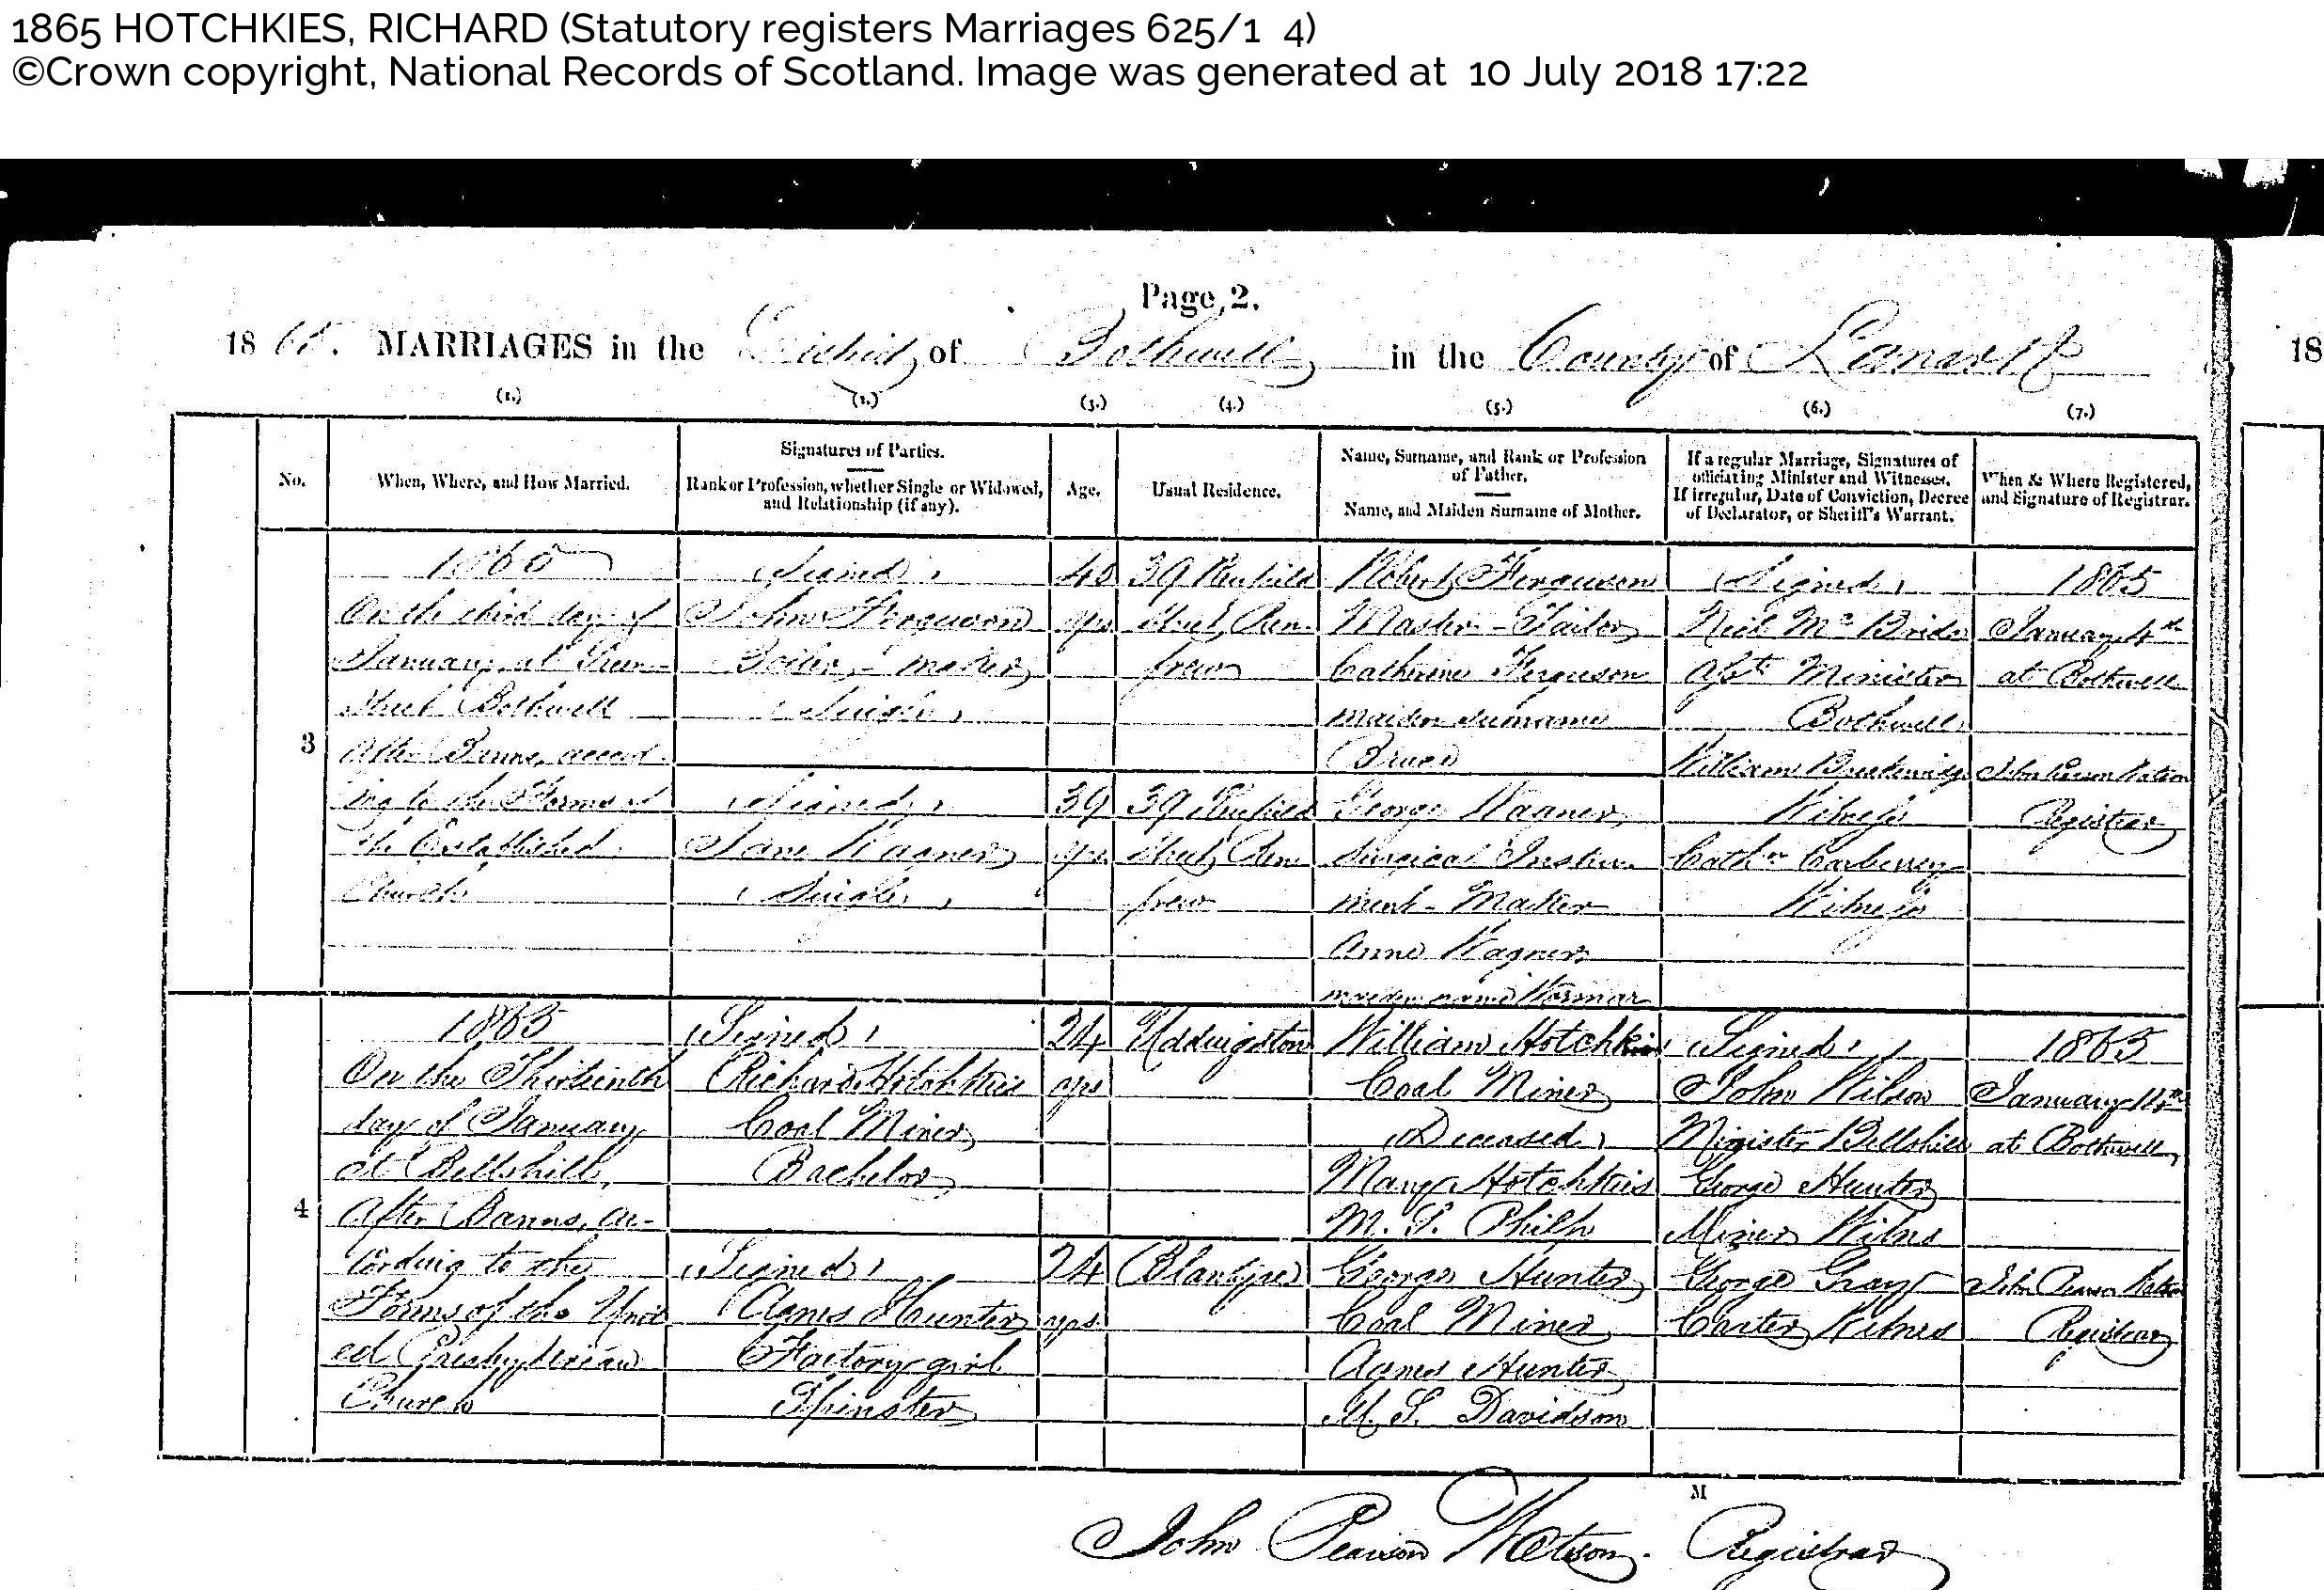 1865 HOTCHKIES, RICHARD (Statutory registers Marriages 625/1 4)
©Crown copyright, National Records of Scotland. Image was generated at 10 July 2018 17:22
Page 2.
1865. MARRIAGES in the of Bothwell in the County of Lanark
18
(1.) (2.) (3.) (4.) (5.) (6.) (7.)
No.
When, Where, and How Married.
Signatures of Parties.
Rank or Profession, whether Single or Widowed,
and Relationship (if any).
Age.
Usual Residence.
Name, Surname, and Rank or Profession
of Father.
Name, and Maiden Surname of Mother.
If a regular Marriage, Signatures of
officiating Minister and Witnesses.
If irregular, Date of Conviction, Decree
of Declarator, or Sheriff's Warrant.
When & Where Registered,
and Signature of Registrar.
3
1865
On the third day of
January, at
Street Bothwell
After Banns, accord
ing to the Forms of
the Established
Church
(Signed)
John Ferguson
Boiler-maker
(Single)
(Signed)
Jane Wagner
(Single)
40
yrs
39
yrs
39
Street, Ren
frew
39
Street, Ren
frew
Robert Ferguson
Master-Tailor
Catherine Ferguson
maiden surname
Bruce
George Wagner,
Surgical Instru
ment-Maker
Anne Wagner,
maiden name
(Signed)
Neil McBride
Asst Minister
Bothwell
William
Witness
Cathn Carberry
Witness
1865
January 4th
at Bothwell
John Pearson Watson
Registrar
4
1865
On the Thirteenth
day of January
at Bellshill,
After Banns, ac-
cording to the
Forms of the Unit
ed Presbyterian
Church
(Signed)
Richard Hotchkies
Coal Miner
Bachelor
(Signed)
Agnes Hunter
Factory girl
Spinster
24
yrs
24
yrs
Uddingston
Blantyre
William Hotchkies
Coal Miner
(Deceased)
Mary Hotchkies
M. S. Philp
George Hunter
Coal Miner
Agnes Hunter
M. S. Davidson
(Signed)
John Wilson
Minister Bellshill
George Hunter
Miner Witness
George Gray
Carter Witness
1865
January 14th
at Bothwell,
John Pearson Watson
Registrar
M
John Pearson Watson. Registrar